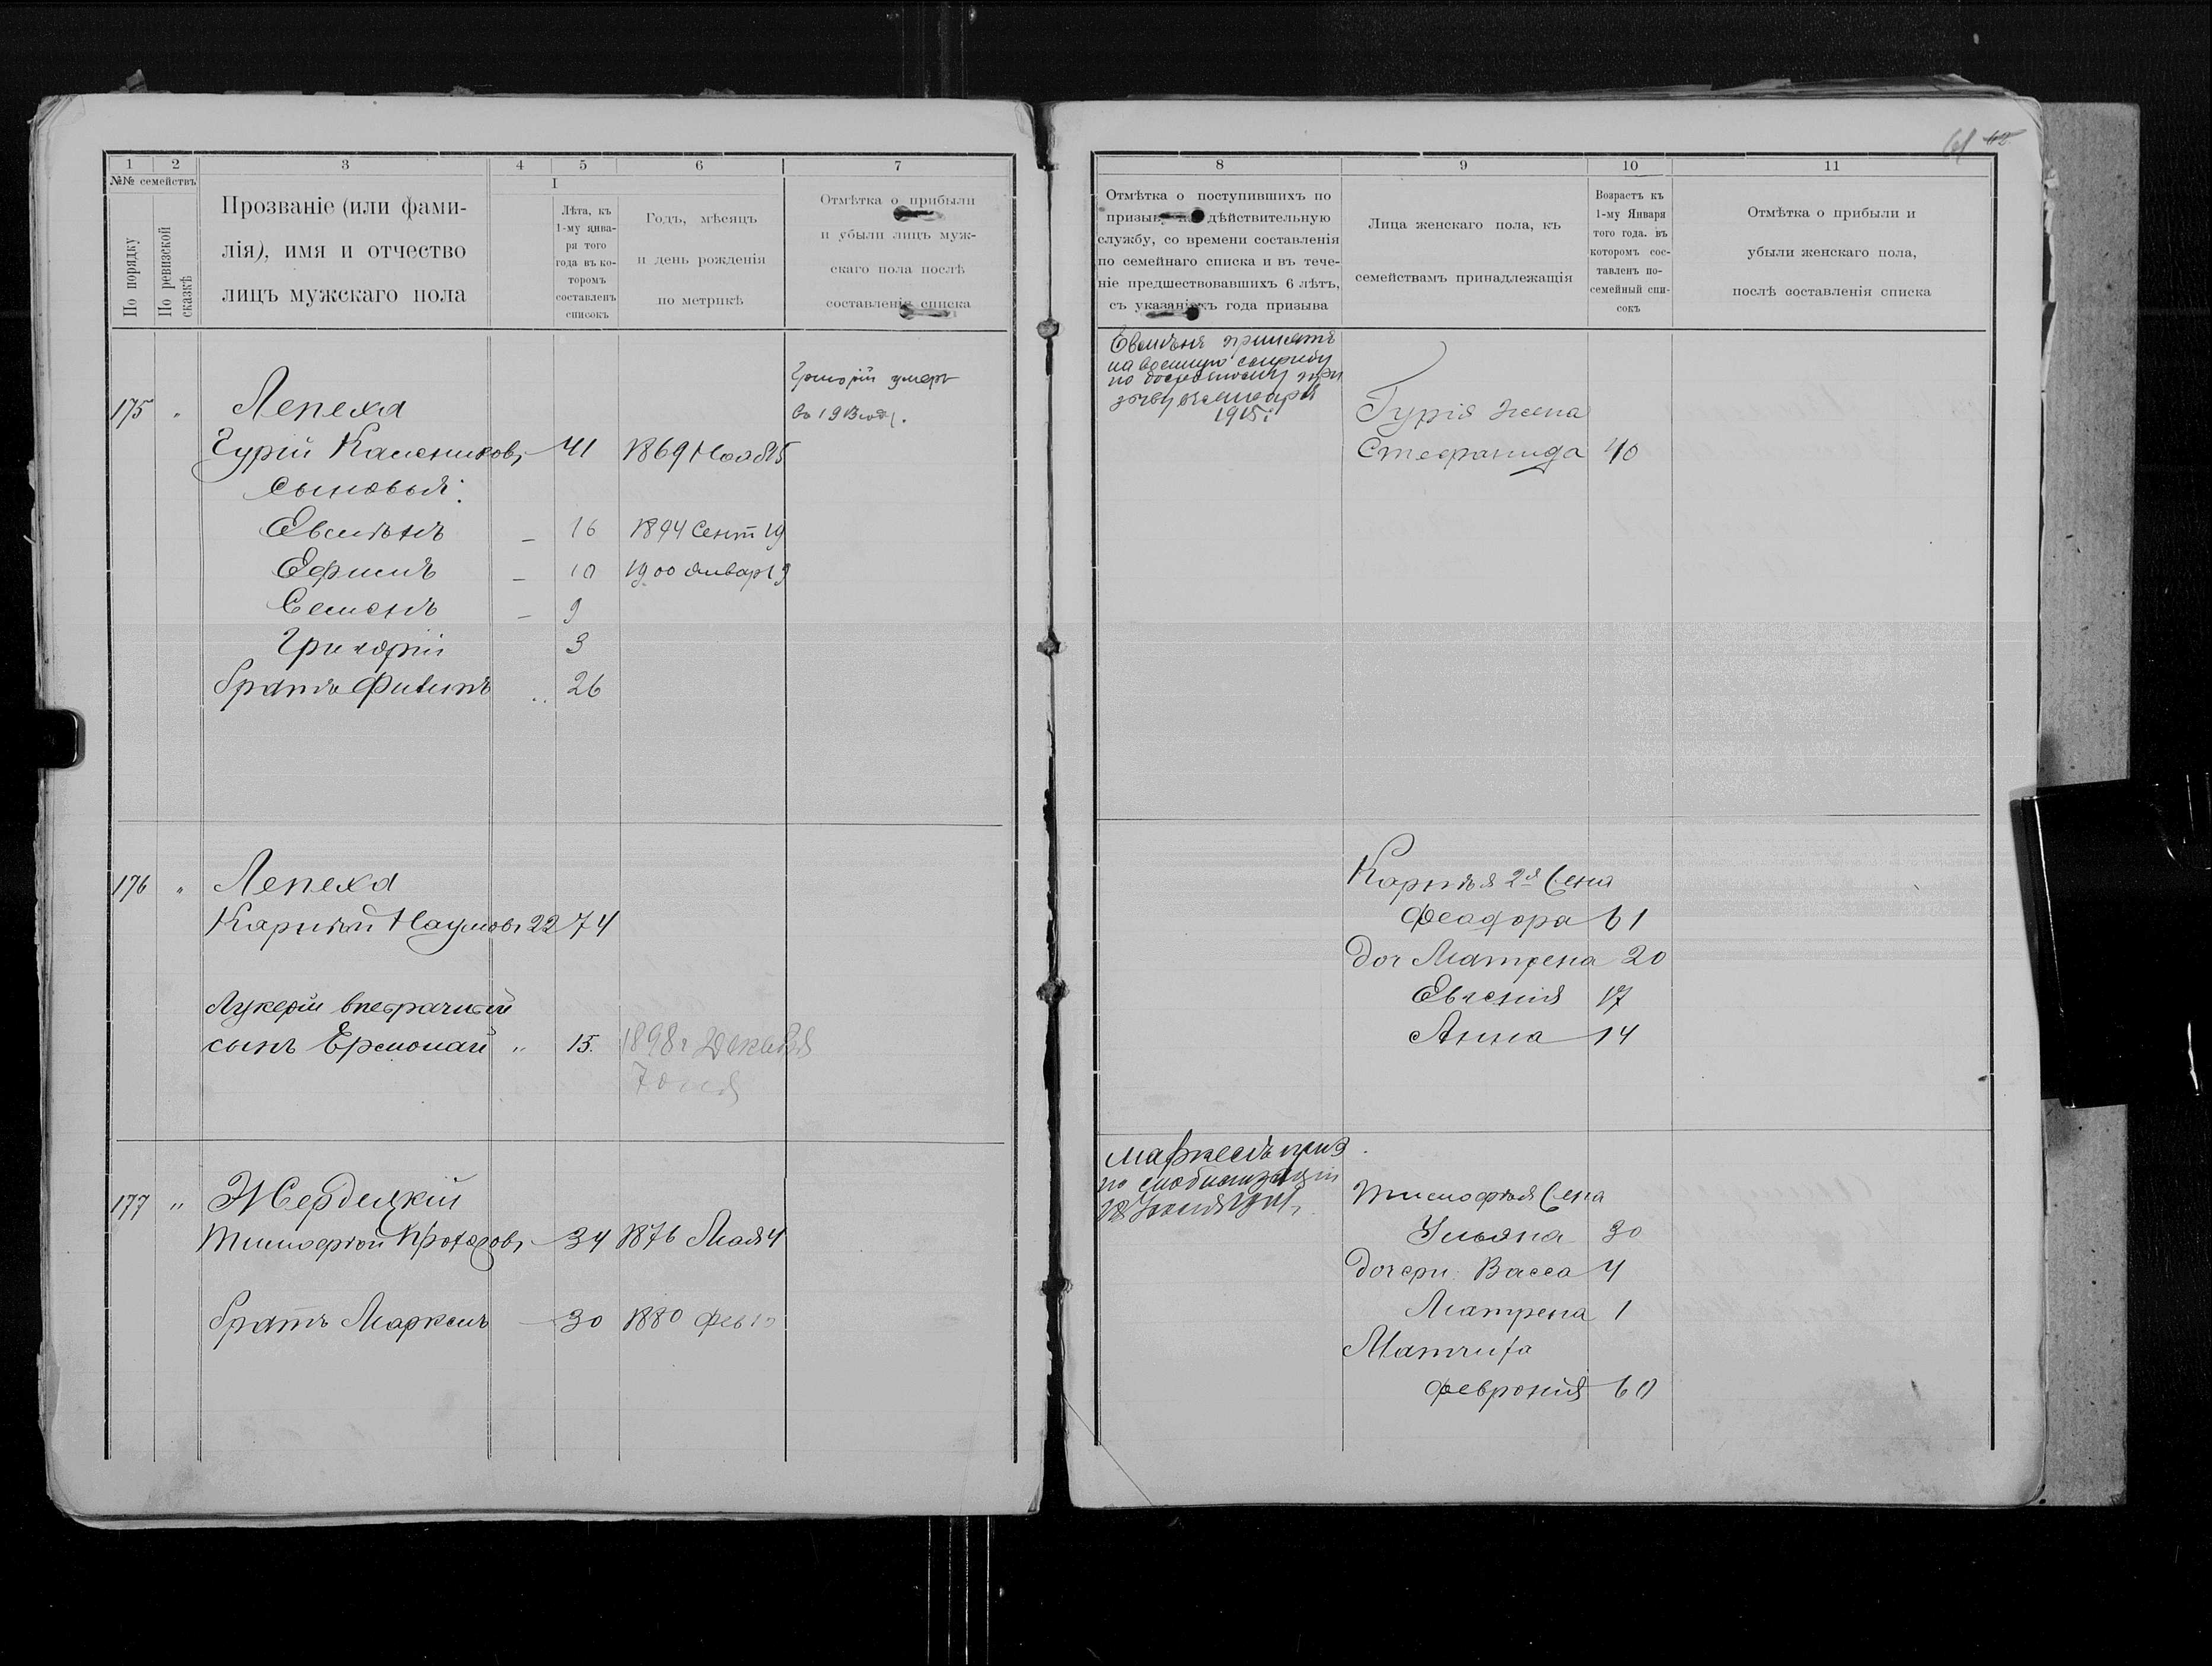 1 2 3 4 5 6 7
№№ семействъ
По порядку
По ревизской сказкѣ
Прозваніе (или фами-
лія), имя и отчество
лицъ мужскаго пола
I
Лѣта, къ
1-му янва-
ря того
года въ ко-
торомъ
составленъ
списокъ
Годъ, мѣсяцъ
и день рожденія
по метрикѣ
Отмѣтка о прибыли
и убыли лицъ муж-
скаго пола послѣ
составленія списка
175 " Лепеха
Григорій умеръ
въ 1913 году.
Гурій Калениковъ 41 1869 Нояб 25
Сыновья:
Евсигній 16 1894 Сент 19
Ефимъ 10 1900 Январ 19
Семенъ 9
Григорій 3
братъ Филипъ 26
176 " Лепеха
Карпѣй Наумовъ 22 74
Лукеріи внебрачный
сынъ Ермолай " 15. 1898 г Декабря
7 дня
177 " Жердецкій
Тимофѣй 34 1876 Мая 4
братъ Маркелъ 30 1880 Фев 10
61
8 9 10 11
Отмѣтка о поступившихъ по
призыву на дѣйствительную
службу, со времени составленія
по семейнаго списка и въ тече-
ніе предшествовавшихъ 6 лѣтъ,
съ указаніемъ года призыва
Лица женскаго пола, къ
семействамъ принадлежащія
Возрастъ къ
1-му Января
того года. въ
которомъ сос-
тавленъ по-
семейный спи-
сокъ
Отмѣтка о прибыли и
убыли женскаго пола,
послѣ составленія списка
принятъ
на военную службу
по досрочному при
зыву
1915 г
Гурія жена
Стефанида 40
Карпѣя 2я жена
Феодора 61
доч Матрена 20
Евгенія 17
Анна 14
Маркелъ приз
по мобилизаціи
18 Іюля 1914 г.
Тимофѣя жена
Ульяна 30
дочери Васса 4
Матрена 1
Матчиха
Февронія 60